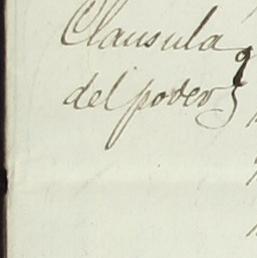 Clausula
del poder